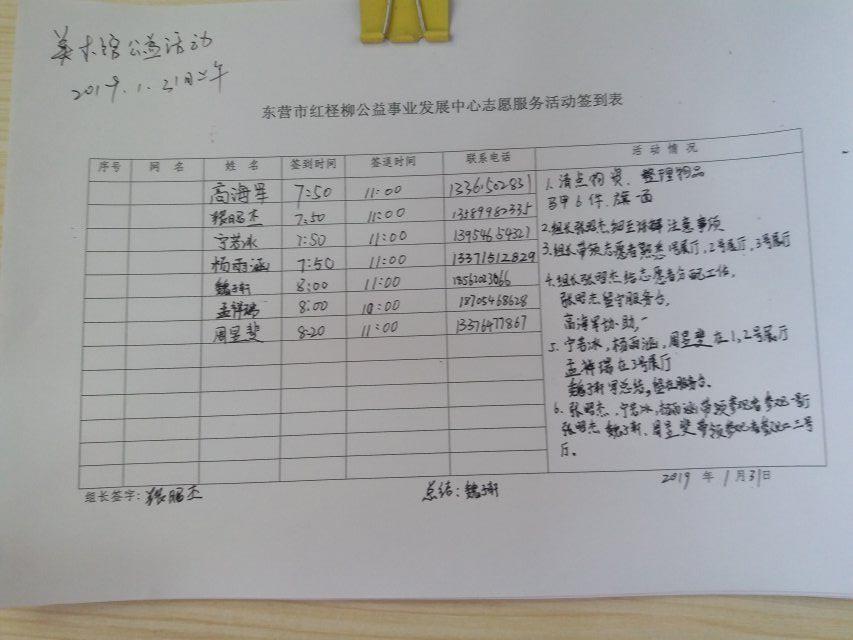 美术馆公益活动
2019.1.31日上午
东营市红柽柳公益事业发展中心志愿服务活动签到表
序号 网名 姓名 签到时间 签退时间 联系电话 活动情况
高海军 7:50 11:00 13361502831
张昭杰 7:50 11:00 13589982335
宁若冰 7:50 11:00 13954654327
杨雨涵 7:50 11:00 13371512829
魏子轩 8:00 11:00 18562023066
孟祥瑞 8:00 10:00 18705468628
周昱斐 8:20 11:00 13376477867
1.清点物资、整理物品
马甲6件、旗一面
2.组长张昭杰细至讲解注意事项
3.组长带领志愿者熟悉1号展厅,2号展厅,3号展厅
4.组长张昭杰给志愿者分配工作。
张昭杰坚守服务台,
高海军协助,
5.宁若冰,杨雨涵,周昱斐在1,2号展厅
孟祥瑞在3号展厅
魏子轩写总结,坐在服务台。
6.张昭杰、宁若冰,杨雨涵带领参观者参观一号厅
张昭杰 魏子轩、周昱斐带领参观者参观二三号
厅。
组长签字:张昭杰 总结:魏子轩 2019年1月31日